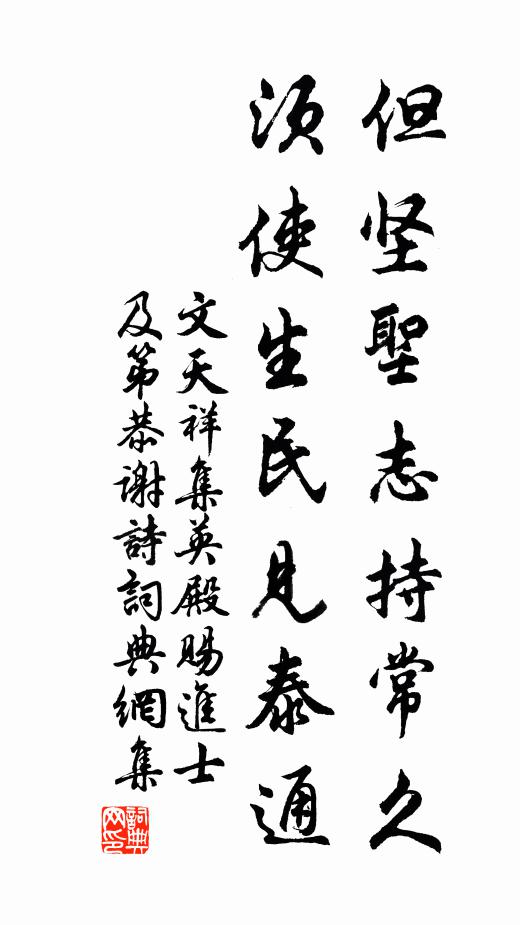 但坚聖志持常久
须使生民見泰通
文天祥集英殿賜進士
及第恭谢詩詞典網集
詞典
网印